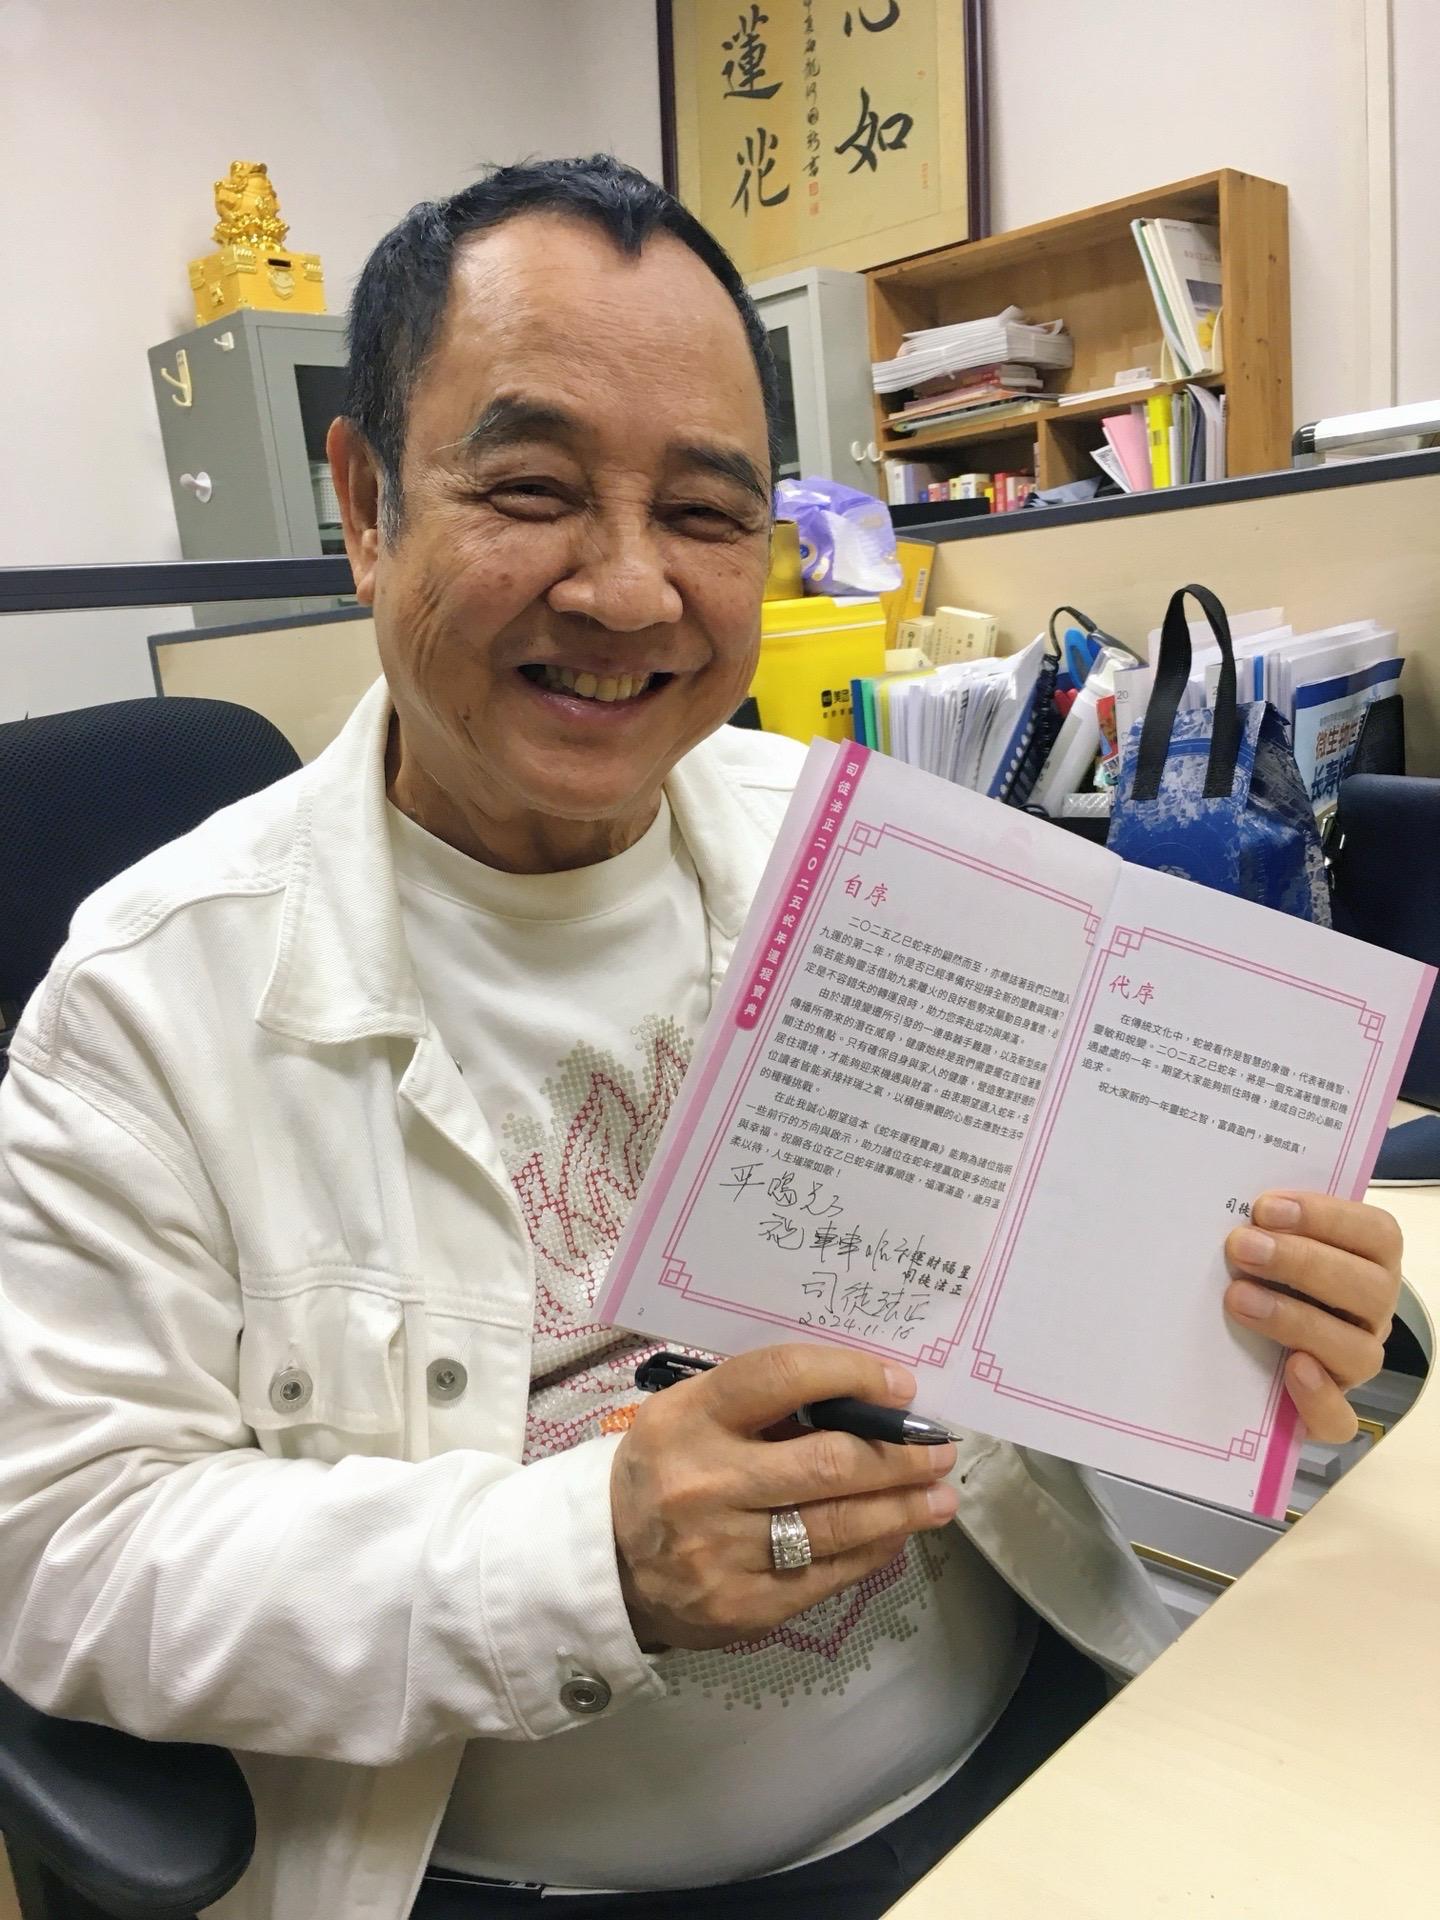 心如
蓮花
司徒法正二〇二五蛇年運程寶典
自序
二〇二五乙巳蛇年的翩然而至，亦標誌著我們已然踏入
九運的第二年，你是否已經準備好迎接全新的變數與契機？
倘若能夠靈活借助九紫離火的良好態勢來驅動自身奮進，必
定是不容錯失的轉運良時，助力您奔赴成功與美滿。
由於環境變遷所引發的一連串棘手難題，以及新型疾病
傳播所帶來的潛在威脅，健康始終是我們需要擺在首位著重
關注的焦點。只有確保自身與家人的健康，營造整潔舒適的
居住環境，才能夠迎來機遇與財富。由衷期望邁入蛇年，各
位讀者皆能承接祥瑞之氣，以積極樂觀的心態去應對生活中
的種種挑戰。
在此我誠心期望這本《蛇年運程寶典》能夠為諸位指明
一些前行的方向與啟示，助力諸位在蛇年裡贏取更多的成就
與幸福。祝願各位在乙巳蛇年諸事順遂，福澤滿盈，歲月溫
柔以待，人生璀璨如歌！
運財福星
司徒法正
司徒法正
2024.11.16
2
代序
在傳統文化中，蛇被看作是智慧的象徵，代表著機智、
靈敏和蛻變。二〇二五乙巳蛇年，將是一個充滿著憧憬和機
遇處處的一年。期望大家能夠抓住時機，達成自己的心願和
追求。
祝大家新的一年靈蛇之智，富貴盈門，夢想成真！
司徒
3
美团
20
微生物
长寿